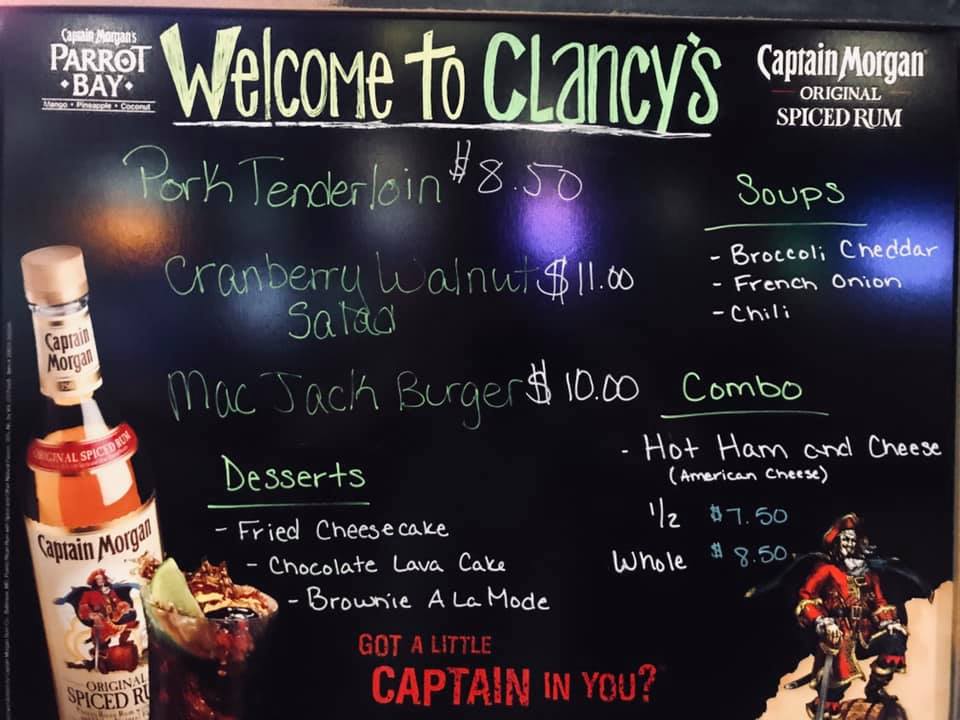 Captain Morgan's
PARROT
• BAY •
Mango • Pineapple • Coconut
Welcome to Clancy's
Captain Morgan
ORIGINAL
SPICED RUM
Pork Tenderloin $8.50
Cranberry Walnut $11.00
Salad
Mac Jack Burger $10.00
Soups
- Broccoli Cheddar
- French Onion
- Chili
Combo
- Hot Ham and Cheese
(American Cheese)
1/2 $7.50
Whole $8.50
Desserts
- Fried Cheesecake
- Chocolate Lava Cake
- Brownie A La Mode
GOT A LITTLE
CAPTAIN IN YOU?
Captain
Morgan
ORIGINAL SPICED RUM
Captain Morgan
ORIGINAL
SPICED RU